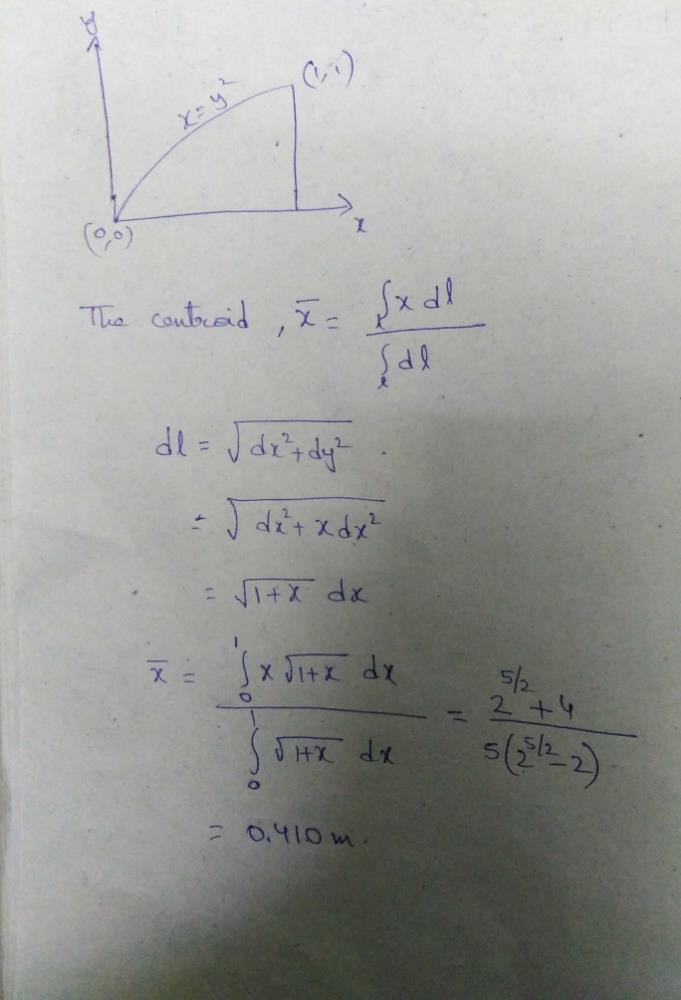 y
(1,1)
x=y²
(0,0)
x
The centroid, x̄ = ∫ₗ x dl / ∫ₗ dl
dl = √(dx²+dy²).
= √(dx²+xdx²)
= √(1+x) dx
x̄ = ∫₀¹ x √(1+x) dx / ∫₀¹ √(1+x) dx = (2^(5/2)+4) / (5(2^(5/2)-2))
= 0.410m.